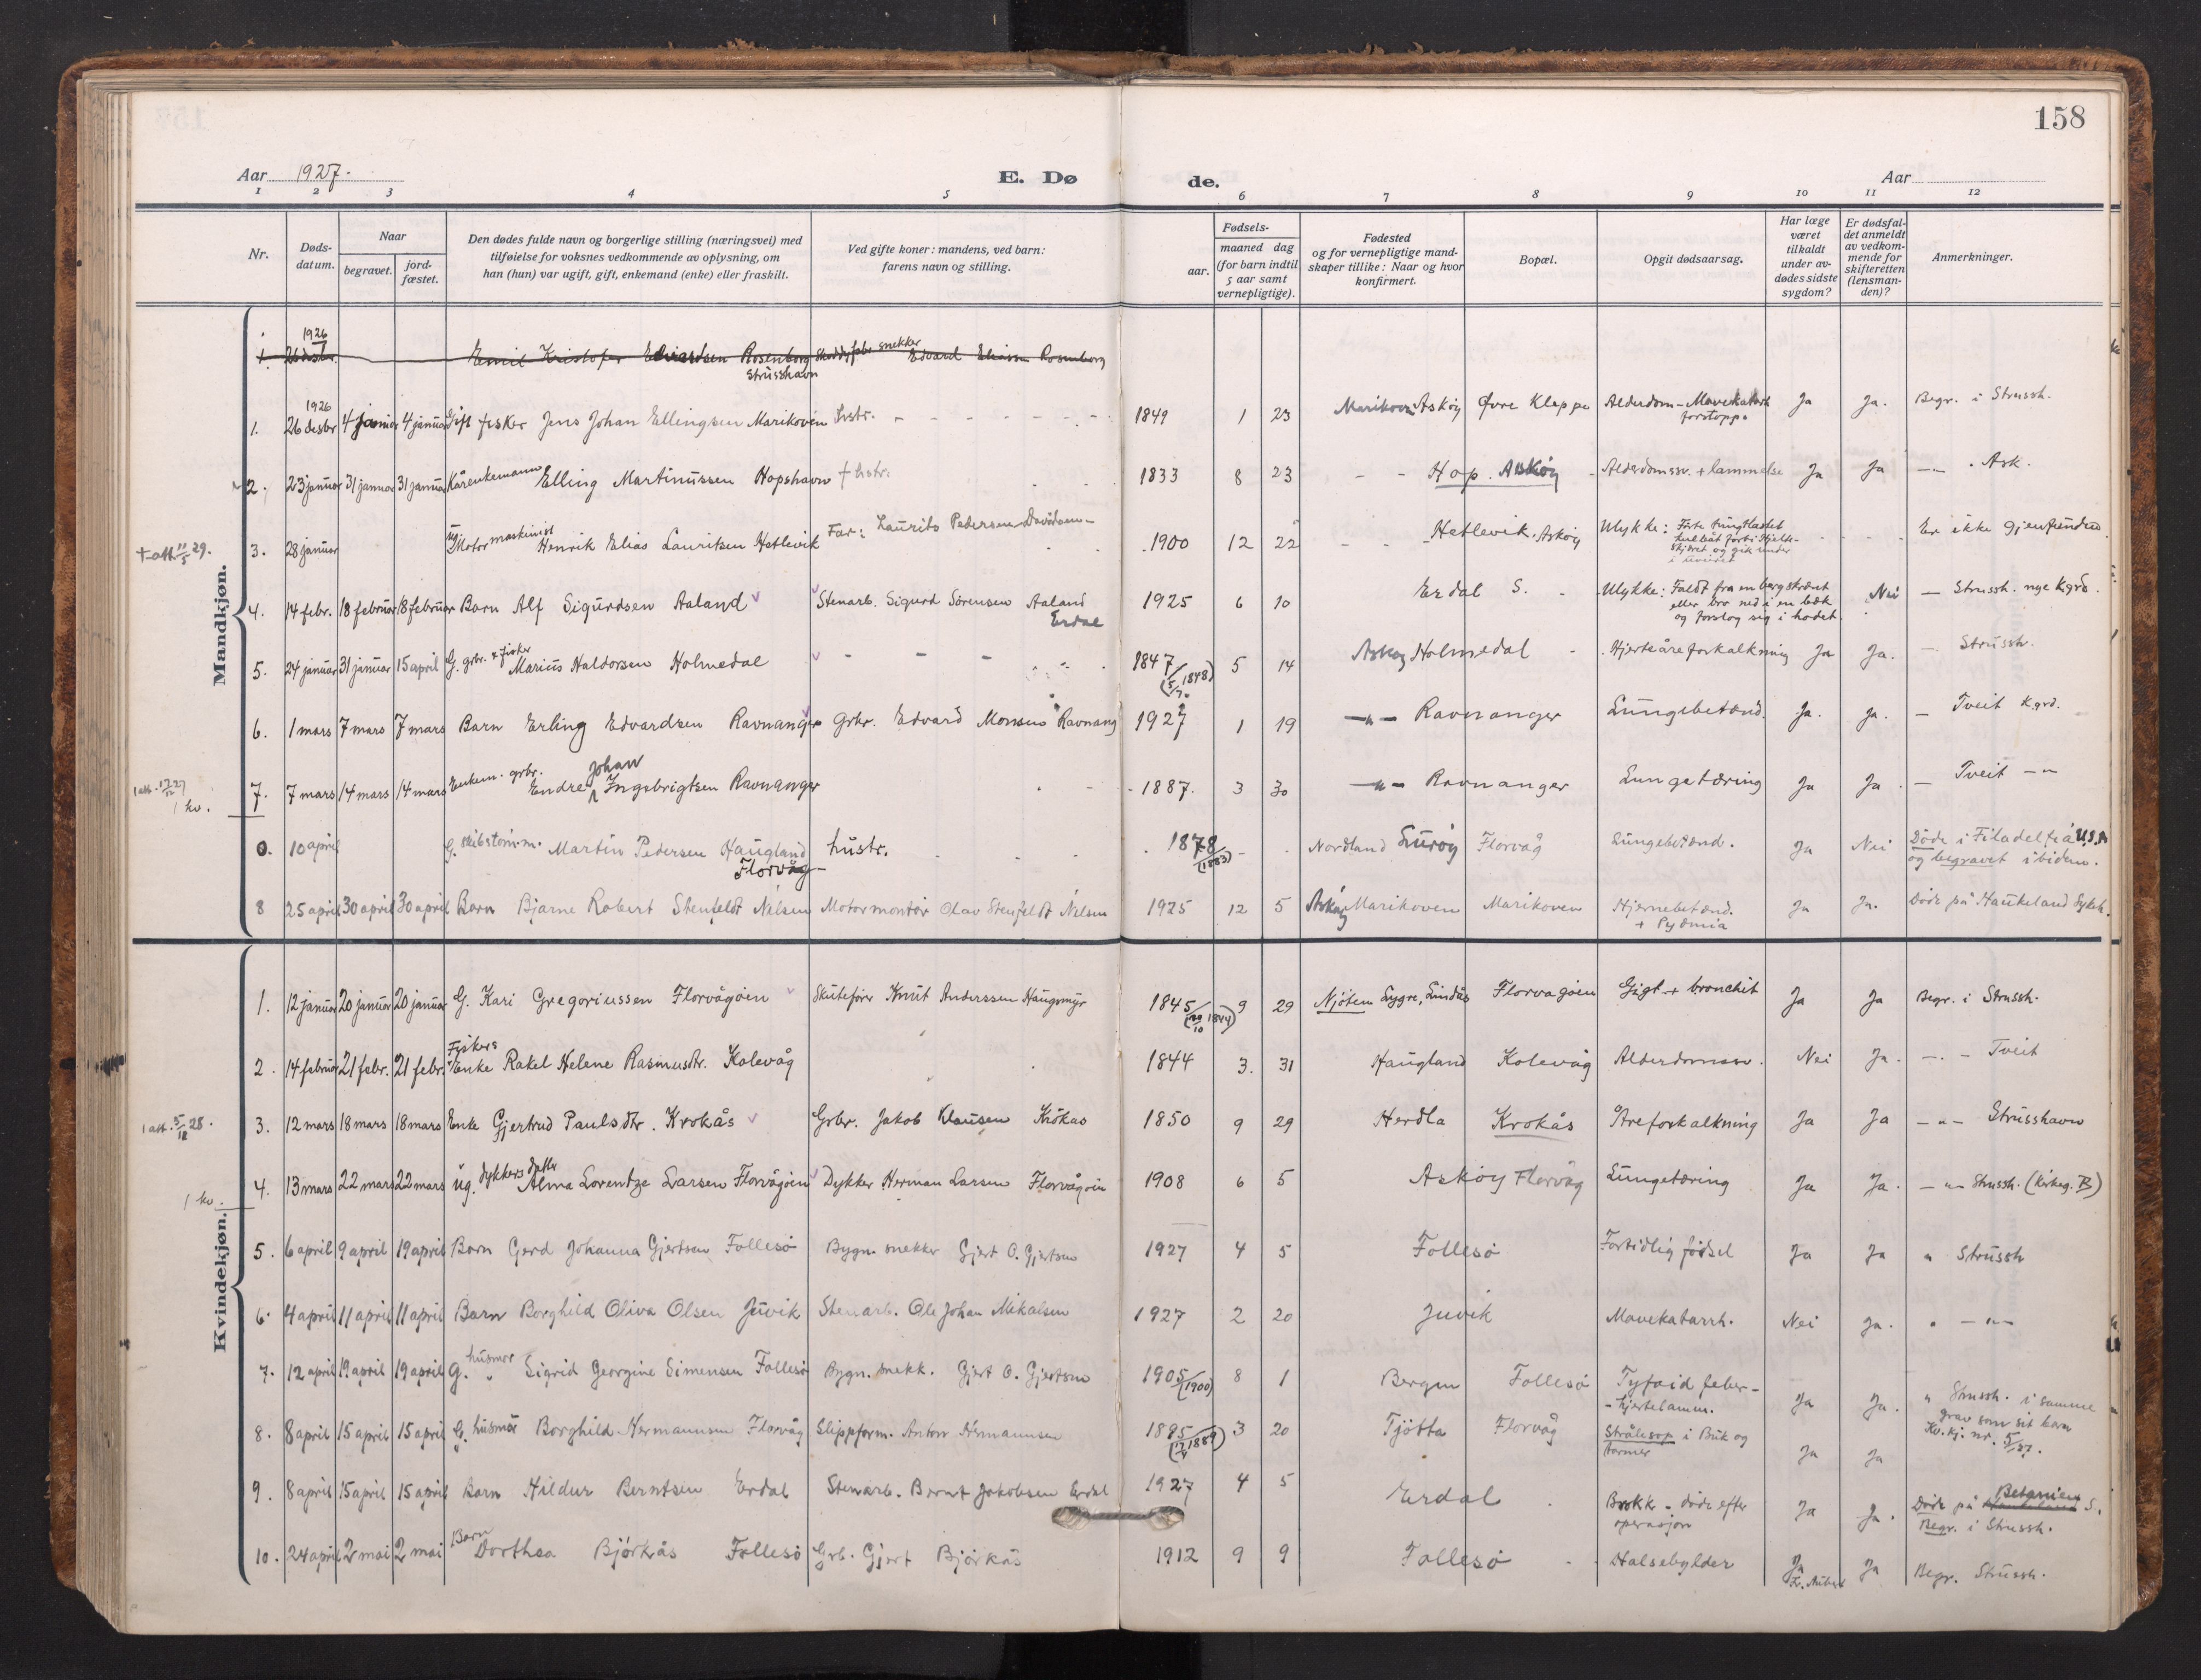 158
Aar 1927.
E. Dø de.
Aar
1 2 3 4 5 6 7 8 9 10 11 12
Nr.
Døds-datum.
Naar
begravet.
jord-fæstet.
Den dødes fulde navn og borgerlige stilling (næringsvei) med
tilføielse for voksnes vedkommende av oplysning, om
han (hun) var ugift, gift, enkemand (enke) eller fraskilt.
Ved gifte koner: mandens, ved barn:
farens navn og stilling.
Fødsels-
aar.
maaned dag
(for barn indtil
5 aar samt
vernepligtige).
Fødested
og for vernepligtige mand-
skaper tillike: Naar og hvor
konfirmert.
Bopæl.
Opgit dødsaarsag.
Har læge
været
tilkaldt
under av-
dødes sidste
sygdom?
Er dødsfal-
det anmeldt
av vedkom-
mende for
skifteretten
(lensman-
den)?
Anmerkninger.
Mandkjøn.
1926
1. 26 desbr. Emil Kristofer Edvardsen Rosenborg snekker Edvard Eliassen Rosenborg
Strusshavn
1926
1. 26 desbr 4 januar 4 januar Gift fisker Jens Johan Ellingsen Marikoven hstr. 1849 1 23 Marikoven Askøy Øvre Kleppe Alderdom - Mavekatarh Ja Ja. Begr. i Strussh.
forstopp.
2. 23 januar 31 januar 31 januar Kårenkemann Elling Martinussen Hopshavn † hstr. 1833 8 23 - - Hop. Askøy Alderdomssv. + lammelse Ja Ja - " - Ask.
† att. 11/5 29. 3. 28 januar ug Motormaskinist Henrik Elias Lauritsen Hetlevik Far: Laurits Pedersen Davidsen 1900 12 22 - - Hetlevik. Askøy Ulykke: Førte tungtlastet Er ikke gjenfunden.
og gik under
4. 14 febr. 18 februar 18 februar Barn Alf Sigurdsen Aaland Stenarb. Sigurd Sörensen Aaland 1925 6 10 Erdal S. Ulykke: Faldt fra en bergskrænt Nei - Strussh. nye kgrd.
Erdal eller bro ned i en bæk
og forslog sig i hodet.
5. 24 januar 31 januar 15 april G. grbr. & fisker Marius Haldorsen Holmedal - - - 1847 5 14 Askøy Holmedal Hjerteåreforkalkning Ja Ja. - Strussh.
(5/7 1848)
6. 1 mars 7 mars 7 mars Barn Erling Edvardsen Ravnanger Grbr. Edvard Monsen Ravnang 1927 1 19 - " - Ravnanger Lungebetænd. Ja. Ja. - Tveit kgrd.
1 att. 17/12 27
1 kv.
7. 7 mars 14 mars 14 mars Enkem. grbr. Endre Johan Ingebrigtsen Ravnanger 1887. 3 30 - " - Ravnanger Lungetæring Ja Ja. - Tveit - "
0. 10 april G. skibstømm. Martin Pedersen Haugland hustr. 1878 Nordland Lurøy Florvåg Lungebetænd. Ja Nei Døde i Filadelfia U.S.A
Florvåg (1883) og begravet ibidem.
8 25 april 30 april 30 april Barn Bjarne Robert Stenfeldt Nilsen Motormontør Olav Stenfeldt Nilsen 1925 12 5 Askøy Marikoven Marikoven Hjernebetænd. Ja Ja. Døde på Haukeland Sykeh.
+ Pyæmia
Kvindekjøn.
1. 12 januar 20 januar 20 januar G. Kari Gregoriussen Florvågøen Skutefører Knut Anderssen Haugsmyr 1845 9 29 Njøten Lygre, Lindås Florvagøen Gigt + bronchit Ja Ja Begr. i Strussh.
(29/10 1844)
2. 14 februar 21 febr. 21 febr. Fiskers Enke Rakel Helene Rasmusdtr. Kolevåg 1844 3. 31 Haugland Kolevåg Alderdomssv. Nei Ja. - " - Tveit
1 att. 5/12 28. 3. 12 mars 18 mars 18 mars Enke Gjertrud Paulsdtr. Krokås Grbr. Jakob Klausen Krokas 1850 9 29 Herdla Krokås Åreforkalkning Ja Ja - " - Strusshavn
1 kv. 4. 13 mars 22 mars 22 mars ug. dykkers datter Alma Lorentze Larsen Florvågøen Dykker Herman Larsen Florvågøen 1908 6 5 Askøy Florvåg Lungetæring Ja Ja. - " - Strussh. (kirkeg. B)
5. 6 april 9 april 19 april Barn Gerd Johanna Gjertsen Follesö Bygn. snekker Gjert O. Gjertsen 1927 4 5 Follesö Fortidlig fødsel Ja Ja " Strussh
6. 4 april 11 april 11 april Barn Borghild Oliva Olsen Juvik Stenarb. Ole Johan Mikalsen 1927 2 20 Juvik Mavekatarrh. Nei Ja. " - " -
7. 12 april 19 april 19 april G. husmor Sigrid Georgine Simensen Follesö Bygn. snekk. Gjert O. Gjertsen 1905 8 1 Bergen Follesö Tyfoid feber - Ja Ja. " Strussh. i samme
(1900) - hjertelamm. grav som sit barn
Kv.kj. nr. 5/27.
8. 8 april 15 april 15 april G. husmor Borghild Hermannsen Florvåg Slippform. Anton Hermannsen 1885 3 20 Tjøtta Florvåg Strålesop i Buk og Ja Ja
tarmer
9. 8 april 15 april 15 april Barn Hildur Berntsen Erdal Stenarb. Bernt Jakobsen Erdal 1927 4 5 Erdal Brokk - døde efter Ja Ja. Døde på Haukeland Betanien S.
operasjon Begr. i Strussh.
10. 24 april 2 mai 2 mai Barn Dorthea Björkås Follesö Grb. Gjert Björkås 1912 9 9 Follesö Halsebylder Ja Ja Begr. Strussh.